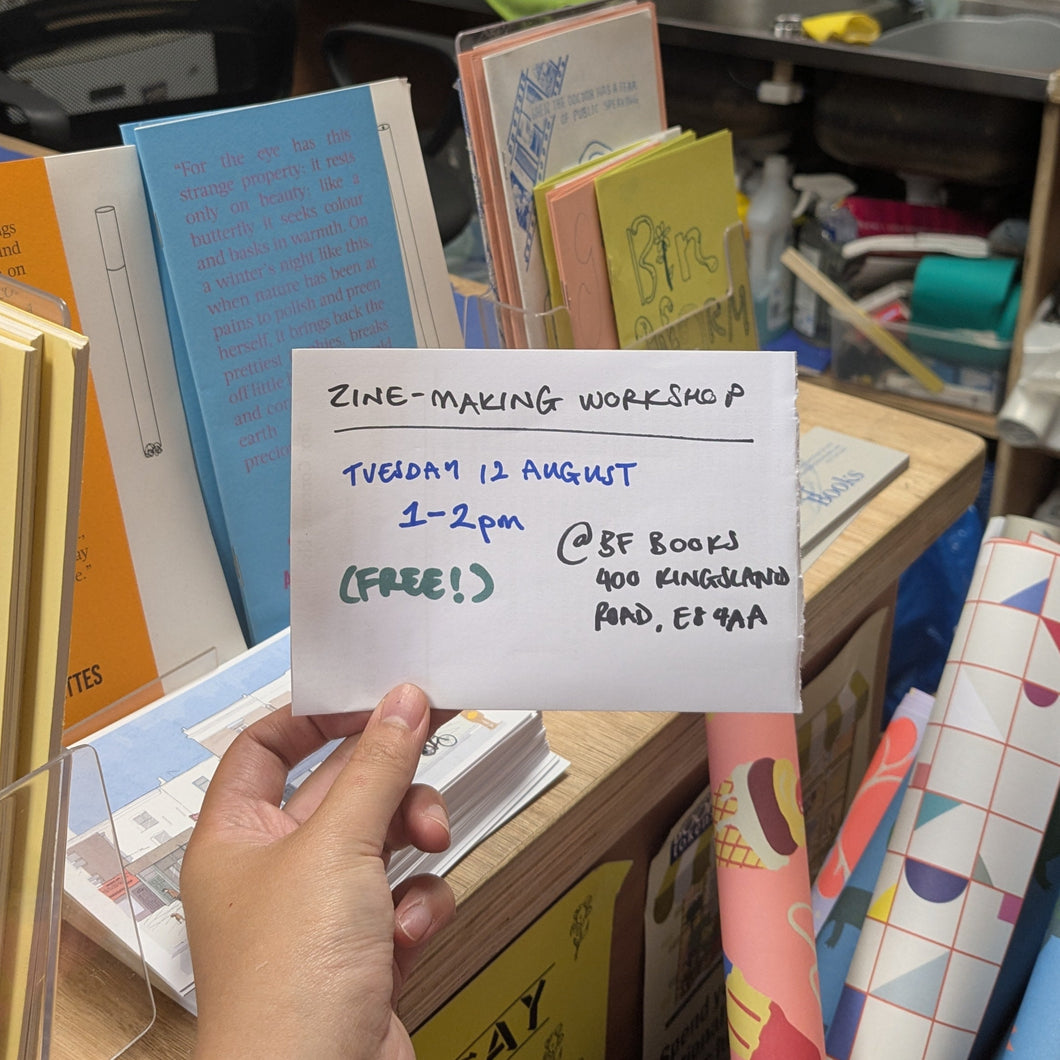 ZINE-MAKING WORKSHOP
TUESDAY 12 AUGUST
1-2pm
(FREE!)
@ BF BOOKS
400 KINGSLAND
ROAD, E8 4AA
"For the eye has this
strange property: it rests
only on beauty; like a
butterfly it seeks colour
and basks in warmth. On
a winter's night like this,
when nature has been at
pains to polish and preen
herself, it brings back the
prettiest
breaks
off little
and
earth
OF PUBLIC SPEAKING
THE DOCTOR HAS A FEAR
Bin
Books
on